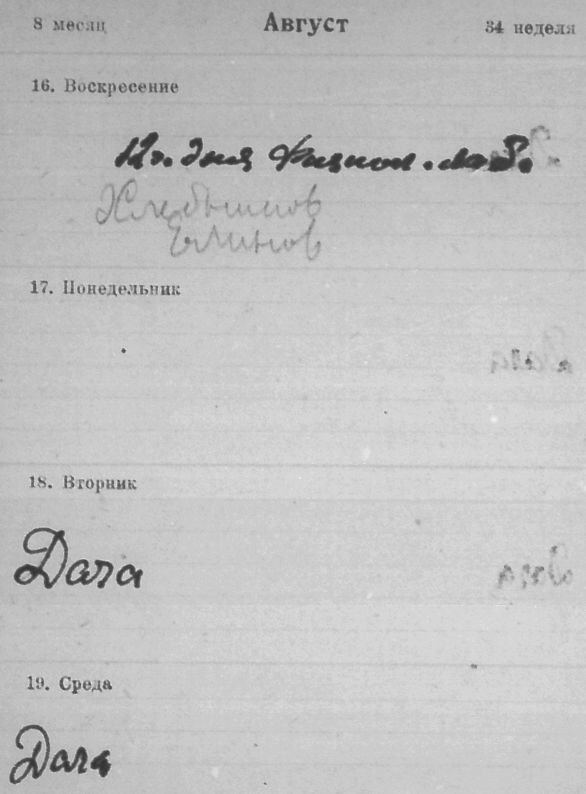 8 месяц Август 34 неделя
16. Воскресение
Хлебников
Блинов
17. Понедельник
18. Вторник
Дача
19. Среда
Дача